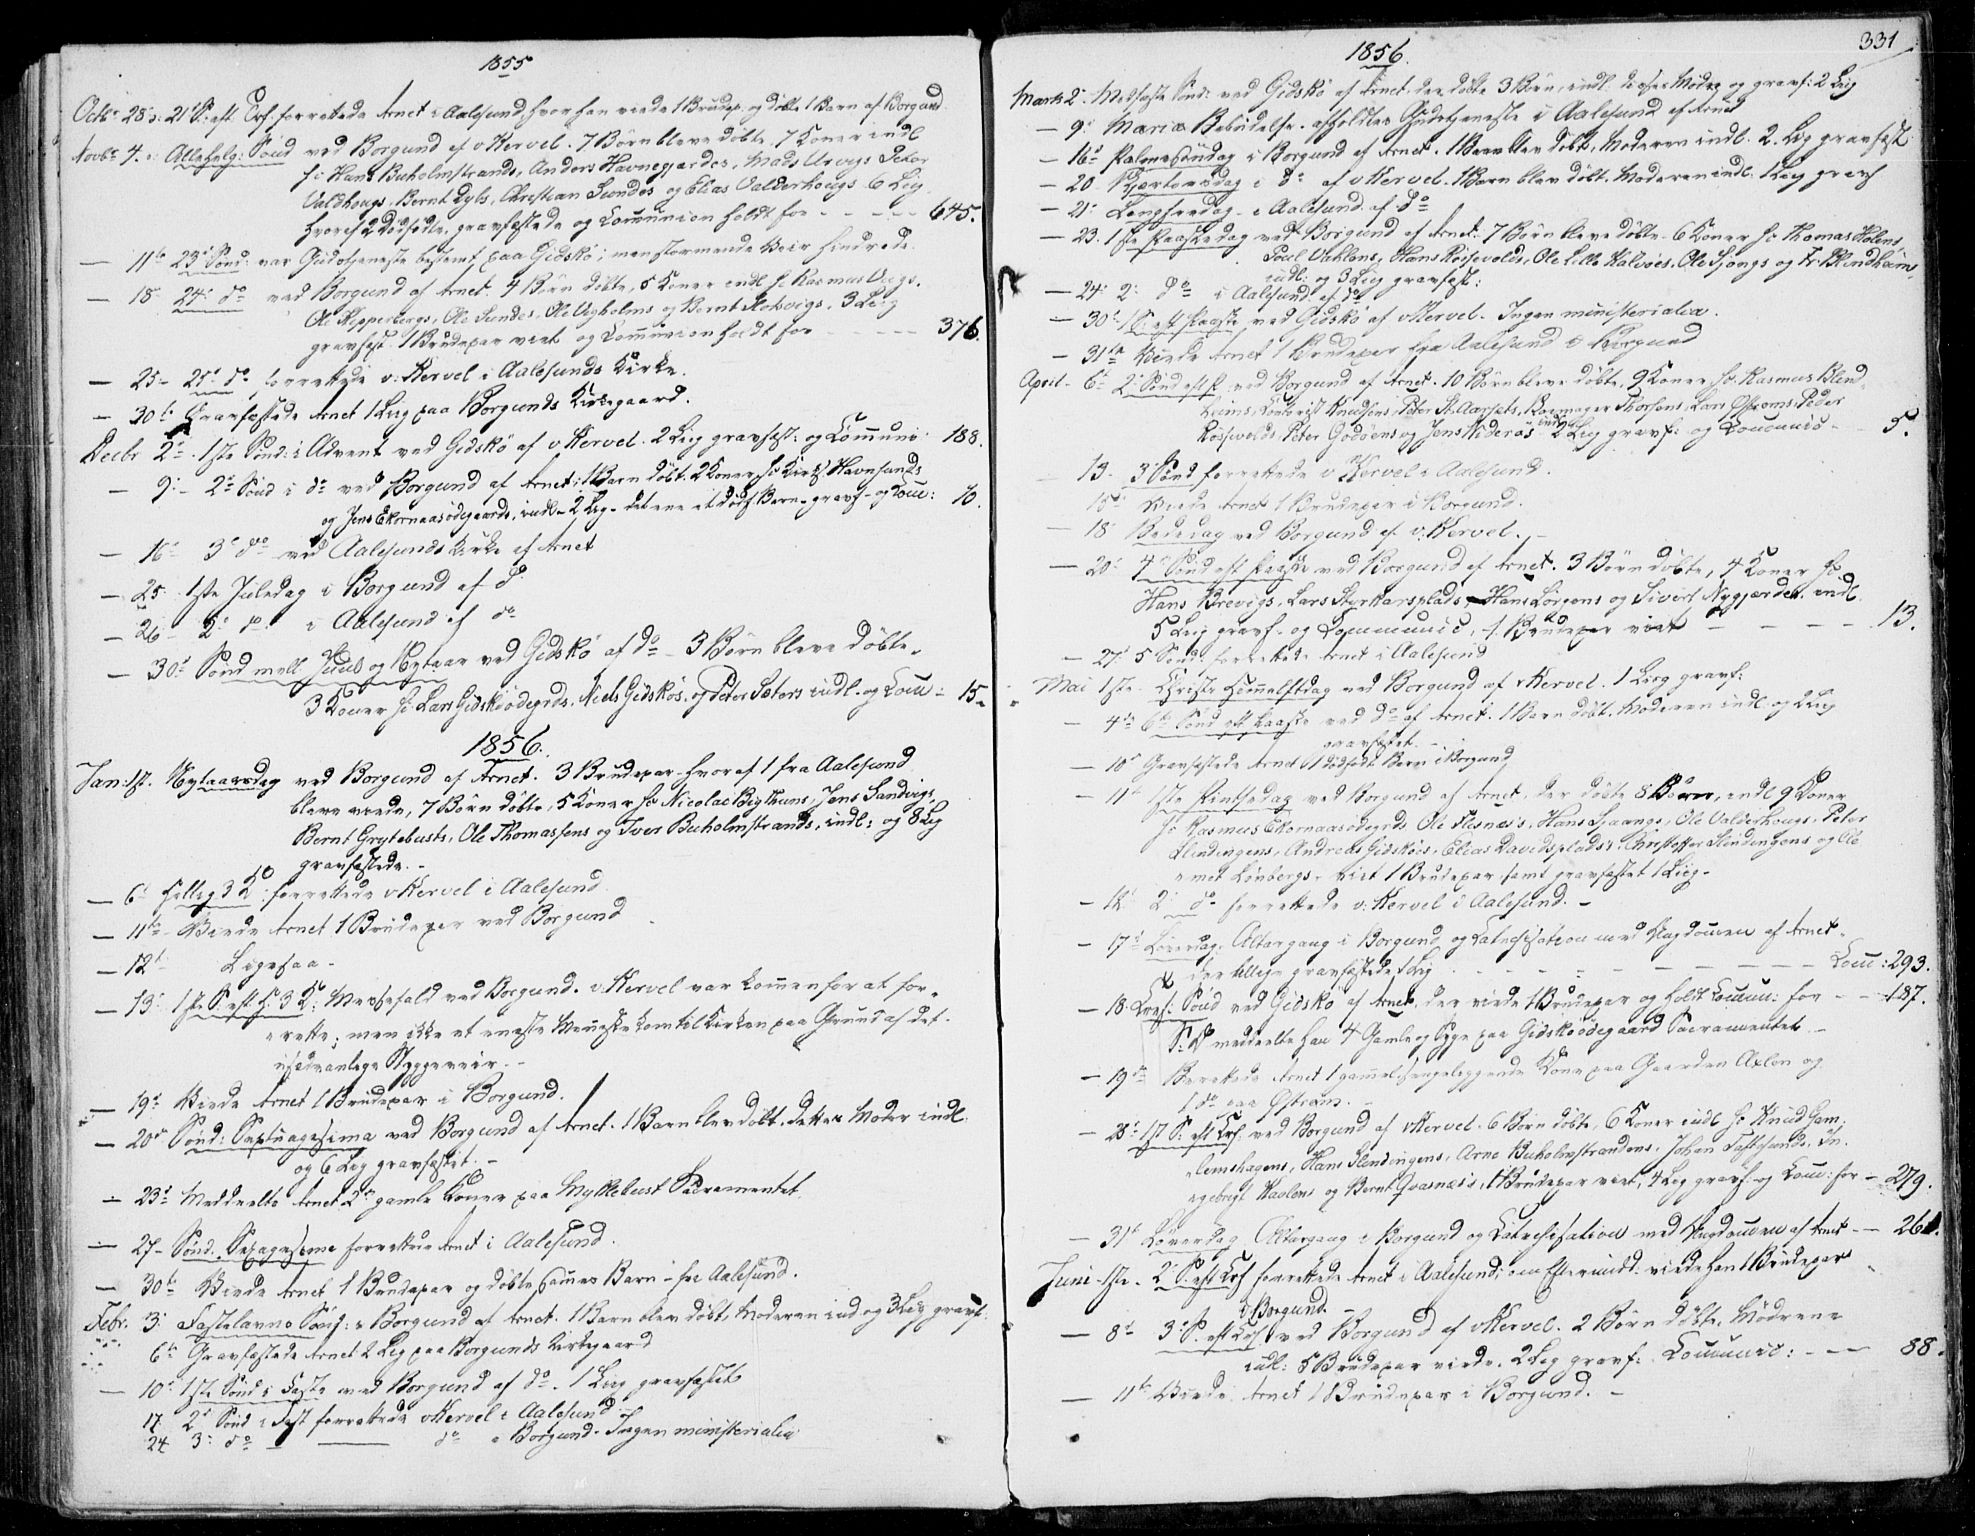 1855
Octbr 28 s: 21d S: eft Trf: forrettede Arnet i Aalesund, hvor han viede 1 Brudep. og døbte 1 Barn af Borgund.
Novbr 4. s: Allehelg: Sønd ved Borgund af v Kervel. 7 Børn bleve døbte, 7 Koner indl
sc Hans Buholmstrands, Anders Havnegjærdes, Mads Urvigs Peter
Valdhougs, Bernt Dybs, Christian Sundes og Elias Valderhougs. 6 Liig
hvoraf 2 dødfødte, gravfæstede og Communion holdt for - - - - - 645.
— 11te 23d Sønd: var Gudstjeneste bestemt paa Gidskø; men stormende Veir hindrede.
— 18 24d do ved Borgund af Arnet. 4 Børn døbte, 5 Koner indl sc Rasmus
Ole Kipperbergs, Ole Sundes, Ole Veholms og Bernt Slotvigs. 3 Liig
gravfest. 1 Brudepar viet og Communion holdt for - - - - 376.
— 25 - 25d do forrettede v: Kervel i Aalesunds Kirke.
— 30te Gravfæstede Arnet 1 Liig paa Borgunds Kirkegaard.
Decbr 2d 1ste Sønd: i Advent ved Gidskø af v Kervel. 2 Liig gravfæst: og Communi: 188.
— 9: - 2d Sønd i do ved Borgund af Arnet: 1 Barn døbt. 2 Koner sc Havnsunds
og Jens Ekornaasødegaards, indl - 2 Liig - det ene et dødf Barn - gravf - og Com: 70.
— 16d 3d do ved Aalesunds Kirke af Arnet
— 25 1ste Juledag i Borgund af do
— 26 - 2d do i Aalesund af do
— 30d Sønd mell Juul og Nytaar ved Gidskø af do - 3 Børn bleve døbte.
3 Koner sc Lars Gidskøødegrds, Niels Gidskøs, og Peter Sæters indl - og Com - 15.
1856.
Jan: 1st. Nytaarsdag ved Borgund af Arnet. 3 Brudepar hvoraf 1 fra Aalesund
bleve viede, 7 Børn døbte, 5 Koner sc Nicolai Jens Sandvigs,
Bernt Grytebusts, Ole Thomassens og Iver Buholmstrands, indl: og 8 Liig
gravfæstede. -
— 6d Hellig 3 K: forrettede v Kervel i Aalesund
— 11te - Viede Arnet 1 Brudepar ved Borgund -
— 12d Ligesaa -
— 13d 1ste S. eft H. 3 K: Messefald ved Borgund. v: Kervel var kommen for at for-
rette; men ikke et eneste Menneske kom til Kirken paa Grund af det
usædvanlige Styggeveir. -
— 19d Viede Arnet 1 Brudepar i Borgund.
— 20d Sønd: Septuagesima ved Borgund af Arnet. 1 Barn blev døbt, dettes Moder indl.
og 6 Liig gravfæstet. -
— 23d Meddeelte Arnet 2de gamle Koner paa Myklebust Sacramentet.
— 27 - Sønd. Sexagesima forrettede Arnet i Aalesund.
— 30te Viede Arnet 1 Brudepar og døbte Barn - fra Aalesund.
Febr. 3 Fastelavns Sønd: i Borgund af Arnet. 1 Barn blev døbt, Moderen ind og 3 Liig gravf:
6te Gravfæstede Arnet 2 Liig paa Borgunds Kirkegaard
— 10d 1ste Sønd i Faste ved Borgund af do. 1 Liig gravfæstet
17 2d Sønd i Fast forrettede v Kervel i Aalesund
24 3d do — do i Borgund. Ingen ministerialia
1856.
331
Marts 2d. Midfaste Sønd: ved Gidskø af Arnet. der døbte 3 Børn, indl. disses Mødre og gravf: 2 Liig
— 9d Mariæ Bebudelse. afholdtes Gudstjeneste i Aalesund af Arnet
— 16d Palmesøndag i Borgund af Arnet. 1 Barn blev døbt, Moderen indl. 2 Liig gravfæst
— 20 Skjærtorsdag i do af v Kervel. 1 Barn blev døbt. Moderen indl. 1 Liig gravf
— 21: Langfredag - i Aalesund af do
— 23. 1ste Paaskedag ved Borgund af Arnet. 7 Børn bleve døbte - 6 Koner sc Thomas Holens,
Poul Uhlens, Hans Røsevolds, Ole Lille Kalvøes, Ole Sjongs og Fr Blindheim,
indl: og 3 Liig gravfest:
— 24: 2: do i Aalesund af do
— 30d 1 S: eft Paaske ved Gidskø af v Kervel. Ingen ministerialia.
— 31te Viede Arnet 1 Brudepar fra Aalesund i Borgund
April - 6te 2d Sønd eft P ved Borgund af Arnet. 10 Børn bleve døbte, 9 Koner sc: Rasmus Blind-
heims, Knudsens, Peter Aarsets, Thorsens, Lars Østrems, Peder
Røssevolds, Peter Godøens og Jens indl 2 Liig gravf: og Communic - 5.
13 - 3d Sønd forrettede v Kervel i Aalesund.
15d Viede Arnet 1 Brudepar i Borgund.
— 18 Bededag ved Borgund af v: Kervel. -
— 20d 4d Sønd eft Paaske ved Borgund af Arnet. 3 Børn døbte, 4 Koner sc
Hans Brevigs, Lars Styrkarsplads, Hans Lørgens og Sivert Nygjærdes indl
5 Liig gravf - og Communic, 1 Brudepar viet - - - - - 13.
— 27d 5 Sønd: forrettede Arnet i Aalesund
Mai 1ste - Christi Himmelfdag ved Borgund af v Kervel. 1 Liig gravf:
— 4de 6te Sønd eft Paaske ved do af Arnet. 1 Barn døbt. Moderen indl og 2 Liig
gravfæstet. -
— 10d Gravfæstede Arnet 1 dødfødt Barn i Borgund
— 11te 1ste Pintsedag ved Borgund af Arnet. der døbte 8 Børn, indl 9 Koner
sc Rasmus Ekornaasødegrds Ole Flesnæs's, Hans Spaangs, Ole Valderhougs, Peter
Slindingens, Andreas Gidskøes, Elias Davidsplads's, Christoffer Slindingens og Ole
Lønbergs - viet 1 Brudepar samt gravfæstet 1 Liig -
— 12d 2: do forrettede v: Kervel i Aalesund. -
— 17d Løverdag. Altargang i Borgund og Catechisation med Ungdommen af Arnet.
der tillige gravfæstede 1 Liig - - - - - - - - Com: 293.
— 18 Tref: Sønd ved Gidskø af Arnet, der viede 1 Brudepar og holdt Commun: for - - 187.
S: D meddeelte han 4 Gamle og Syge paa Gidskøødegaard Sacramentet -
— 19de Berettede Arnet 1 gammel sengeliggende Kone paa Gaarden Axlen og
1 do paa Østrem. -
— 25d 1st S: eft Tref: ved Borgund af v Kervel. 6 Børn døbte, 6 Koner indl sc Knud Gam-
lemshagens, Hans Slindingens, Arne Buholmstrandens, Johan In-
gebrigt Haolens og Bernt Qvasnæs's, 1 Brudepar viet, 4 Liig gravf - og Com: for - 279.
— 31te Løverdag Altargang i Borgund og Catechisation med Ungdommen af Arnet - — 261.
Juni 1ste. 2d S. eft Tref forrettede Arnet i Aalesund; om Eftermidd: viede han 1 Brudepar
i Borgund. -
— 8de 3d S. eft Tref ved Borgund af v Kervel. 2 Børn døbte, Mødrene
indl: 5 Brudepar viede. 2 Liig gravf: Communic: - — — 88.
— 11te Viede Arnet 1 Brudepar i Borgund. -